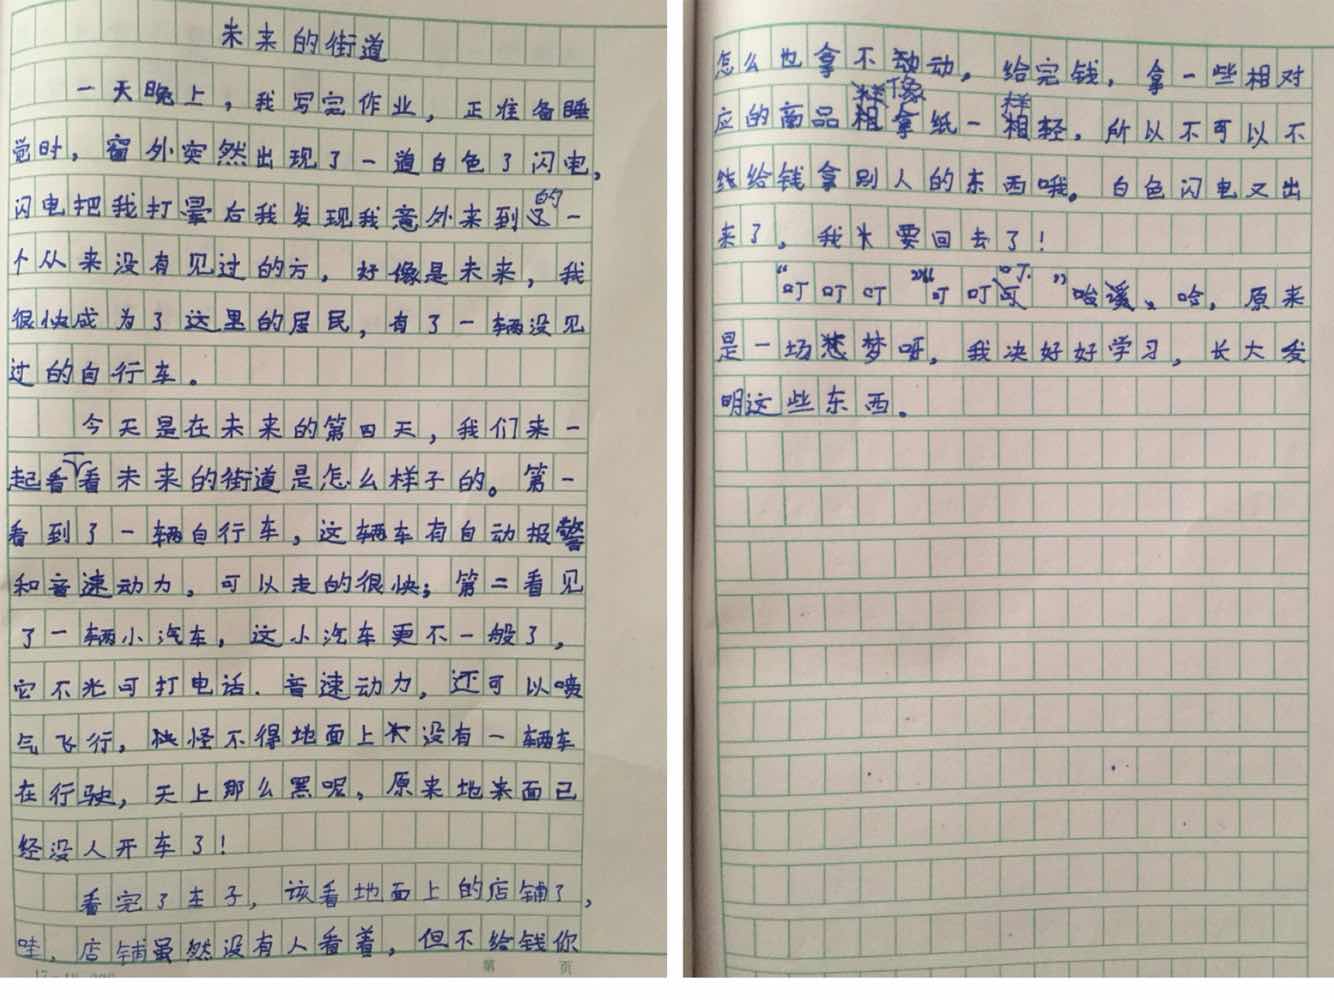 未来的街道
一天晚上，我写完作业，正准备睡
觉时，窗外突然出现了一道白色了闪电，
闪电把我打晕后我发现我意外来到的一
个从来没有见过的方，好像是未来，我
很快成为了这里的居民，有了一辆没见
过的自行车。
今天是在未来的第四天，我们来一
起看看未来的街道是怎么样子的。第一
看到了一辆自行车，这辆车有自动报警
和音速动力，可以走的很快；第二看见
了一辆小汽车，这小汽车更不一般了，
它不光可打电话．音速动力，还可以喷
气飞行，怪不得地面上没有一辆车
在行驶，天上那么黑呢，原来地面已
经没人开车了！
看完了车子，该看地面上的店铺了，
哇，店铺虽然没有人看着，但不给钱你
怎么也拿不动，给完钱，拿一些相对
应的商品像拿纸一样轻，所以不可以不
给钱拿别人的东西哦。白色闪电又出
来了，我要回去了！
“叮叮叮”“叮叮叮”哈、哈，原来
是一场梦呀，我决好好学习，长大发
明这些东西。
第 页